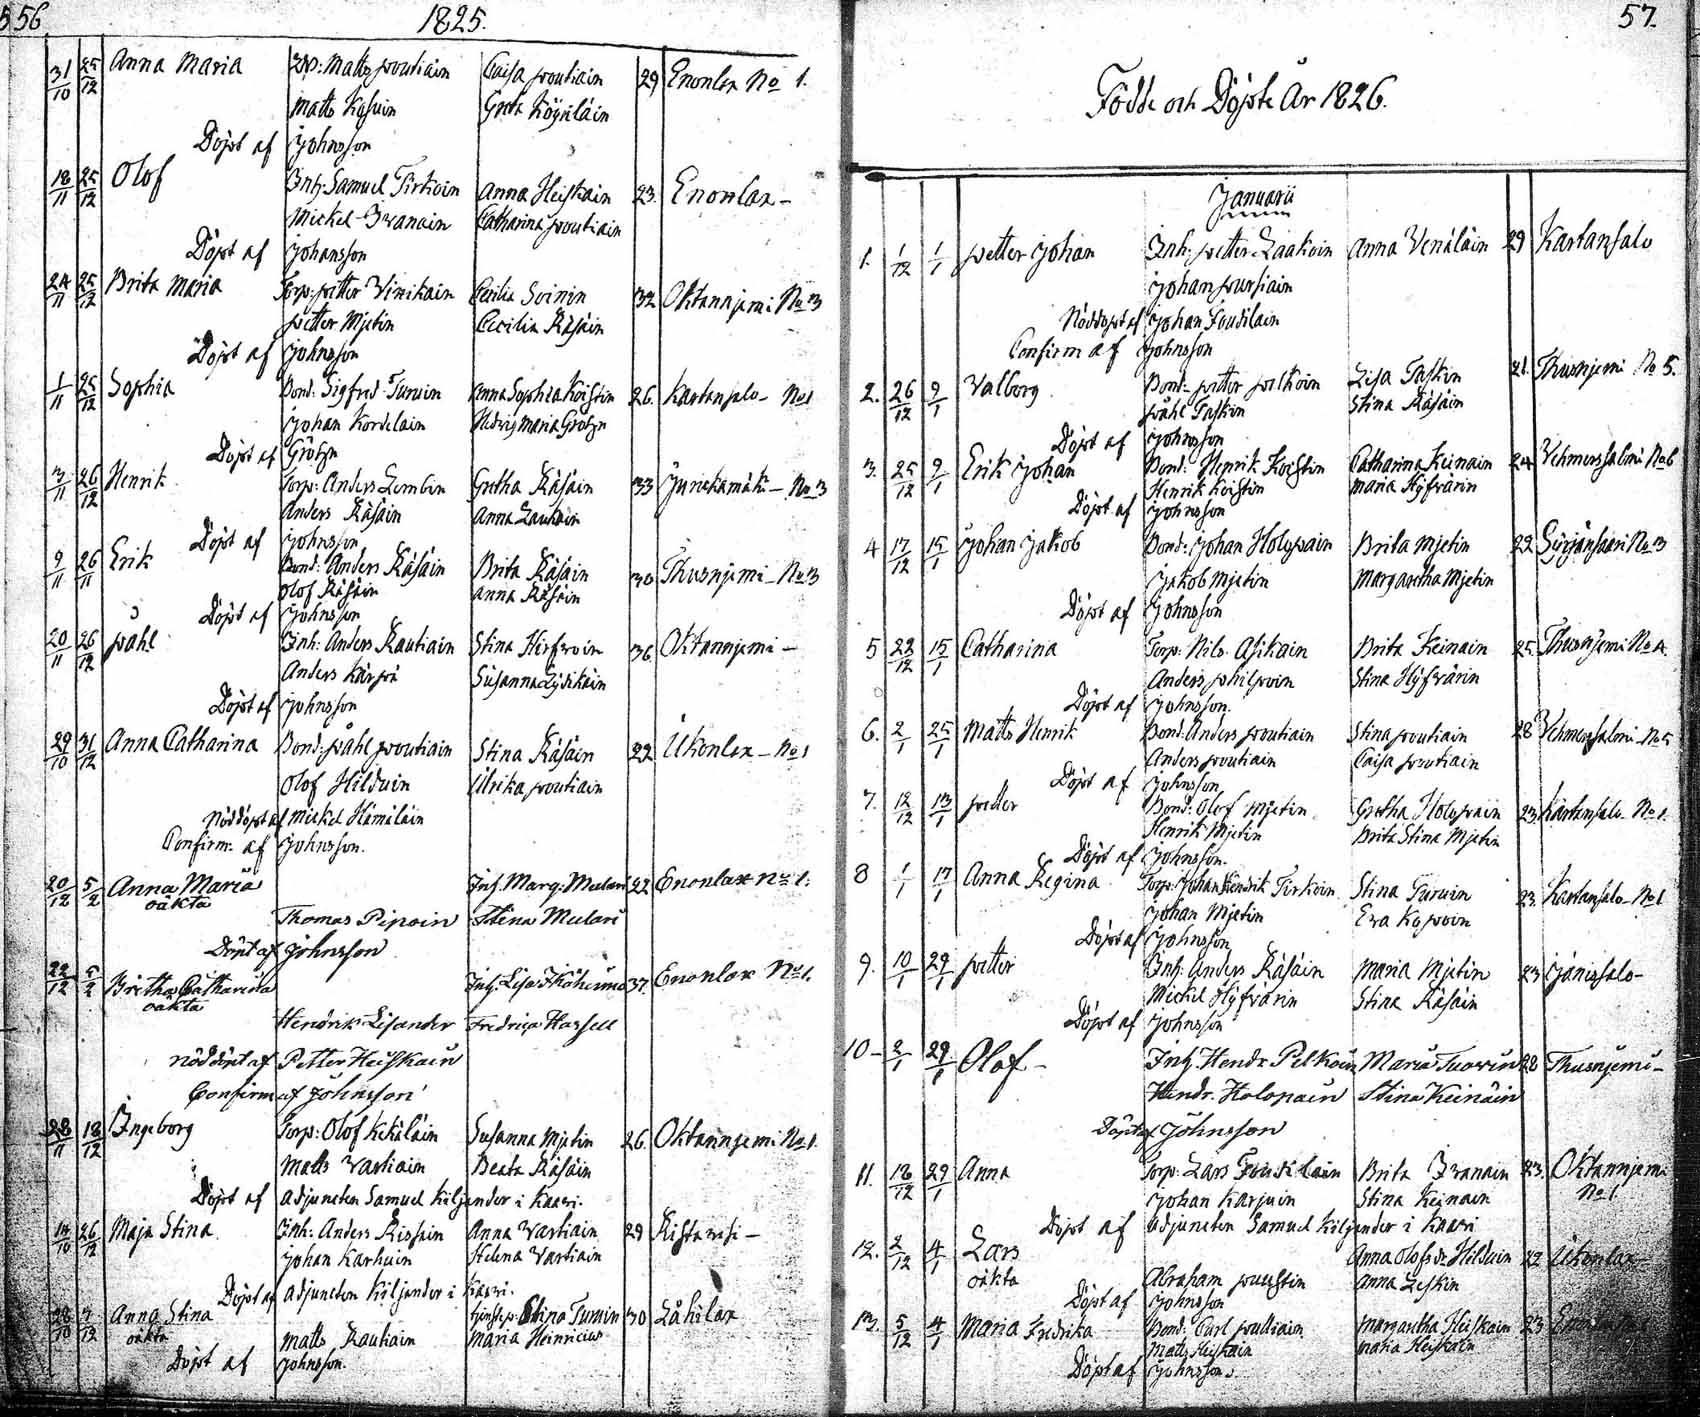 56
1825.
31/10 25/12 Anna Maria Matts Poutiain Caisa Poutiain 29 Enonlax No 1.
Matts Greta Köynläin
Döpt af Johnsson
18/11 25/12 Olof Inh: Samuel Tirkoin Anna Heiskain 23. Enonlax –
Mickel Ivanain Catharina Poutiain
Döpt af Johansson
24/11 25/12 Brita Maria Torp: Petter Vinikain Cecilia Soinin 32 Oktannjemi No 3
Petter Mjetin Cecilia Räsäin
Döpt af Johnsson
1/11 25/12 Sophia Bond: Sigfred Turuin Anna Sophia Koistin 26. Kartansalo – No 1
Johan Kordelain Hedvig Maria Grotzn
Döpt af Grotzn
3/11 26/12 Henrik Torp: Anders Lembin Gretha Räsäin 33 Jurickamäki – No 3
Anders Räsäin Anna
Döpt af Johnsson
9/11 26/11 Erik Bond: Anders Räsäin Brita Räsäin 30 Thusnjemi – No 3
Olof Räsäin Anna Räsäin
Döpt af Johnsson
20/11 26/12 Påhl Inh: Anders Rautiain Stina Hirfwoin 36. Oktannjemi –
Anders Kärpä Susanna Lyðikäin
Döpt af Johnsson
29/10 31/12 Anna Catharina Bond: Påhl Poutiain Stina Räsäin 22 Ukonlax – No 1
Olof Hilduin Ulrika Poutiain
Nöddöpt af Mickel Hämäläin
Confirm: af Johnsson.
20/12 5/2 Anna Maria Inh. Marg: Mulari 22 Enonlax No 1.
oäkta
Thomas Piponin Stina Mulari
Döpt af Johnsson
22/12 5/2 Britha Catharina Inh. Lisa Ikäheimo 37. Enonlax No 1.
oäkta
Hendrik Lisander Fredrica Hassell
Nöddöpt af Petter Heiskain
Confirm af Johnsson
28/11 18/12 Ingeborg Torp: Olof Kekäläin Susanna Mjetin 26. Oktannjemi No 1.
Matts Vartiain Beata Räsäin
Döpt af Adjuncten Samuel Kiljander i Kaavi.
14/10 26/12 Maja Stina Inh: Anders Rissain Anna Vartiain 29 Ristavesi –
Johan Karhuin Helena Vartiain
Döpt af Adjuncten Kiljander i Kaavi.
28/10 7/12 Anna Stina Tjenstep: Stina Turuin 30 Låhilax
oäkta Matts Rautiain Maria Heinricius
Döpt af Johnsson.
57.
Födde och Döpte År 1826.
Januarii
1. 1/12 1/1 Petter Johan Inh: Petter Laakoin Anna Venäläin 29 Kartansalo
Johan Pursiain
Nöddöpt af Johan Foudilain
Confirm af Johnsson
2. 26/12 9/1 Valborg Bond: Petter Pelkoin Lisa Taskin 21. Thusnjemi No 5.
Påhl Taskin Stina Räsäin
Döpt af Johnsson
3. 25/12 9/1 Erik Johan Bond: Henrik Koistin Catharina Keinain 24 Vehmersalmi No 6
Henrik Koistin Maria Hyfvärin
Döpt af Johnsson
4 17/12 15/1 Johan Jakob Bond: Johan Holopain Brita Mjetin 22 Syrjänsaari No 3
Jakob Mjetin Margaretha Mjetin
Döpt af Johnsson
5 22/12 15/1 Catharina Torp: Nils Asikain Brita Keinain 25. Thusnjemi No 4.
Anders Philpoin Stina Hyfvärin
Döpt af Johnsson.
6. 2/1 25/1 Matts Henrik Bond: Anders Poutiain Stina Poutiain 28 Vehmersalmi – No 5
Anders Poutiain Caisa Poutiain
Döpt af Johnsson
7. 12/12 13/1 Petter Bond: Olof Mjetin Gretha Holopain 23. Kartansalo No 1.
Henrik Mjetin Brita Stina Mjetin
Döpt af Johnsson.
8 1/1 17/1 Anna Regina Torp: Johan Hendrik Tirkoin Stina Turuin 23. Kartansalo – No 1
Johan Mjetin Eva Kopoin
Döpt af Johnsson
9. 10/1 29/1 Petter Inh: Anders Räsäin Maria Mjetin 23 Jänissalo –
Mickel Hyfvärin Stina Räsäin
Döpt af Johnsson
10 – 2/1 29/1 Olof – Inh. Hendr Pelkoin Maria Tuovin 28 Thusnjemi –
Hendr. Holopain Stina Keinäin
Döpt af Johnsson
11. 18/12 29/1 Anna Torp: Lars Foudilain Brita Ivanain 23. Oktannjemi
Johan Karjuin Stina Keinain No 1
Döpt af Adjuncten Samuel Kiljander i Kaavi
12. 2/12 4/1 Lars Anna Olofsdr Hilduin 22 Ukonlax
oäkta Abraham Puustin Anna Leskin
Döpt af Johnsson
13. 5/12 4/1 Maria Fredrika Bond: Carl Poutiain Margaretha Heiskain 23
Matts Heiskain Maria Heiskain
Döpt af Johnsson.